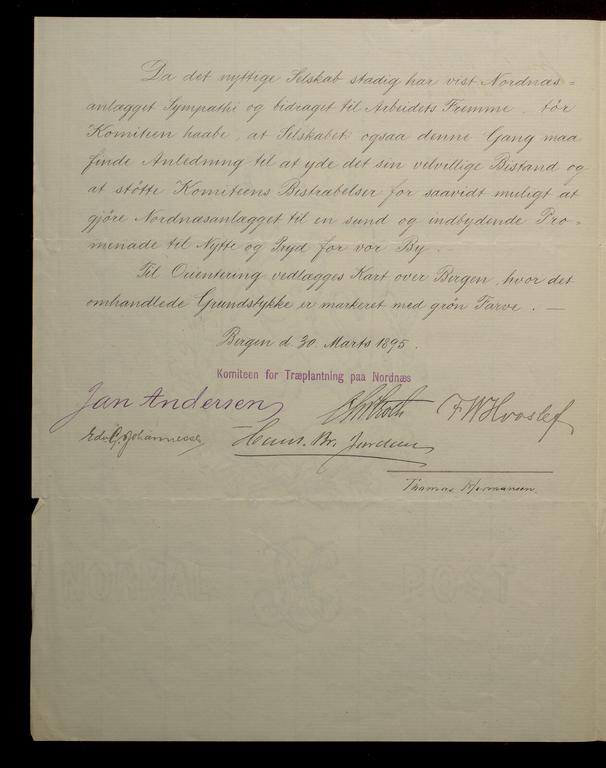 Da det nyttige Selskab stadig har vist Nordnæs=
anlægget Sympathi og bidraget til Arbeidets Fremme, tör
Komitéen haabe, at Selskabet ogsaa denne Gang maa
finde Anledning til at yde det sin velvillige Bistand og
at stötte Komitéens Bestræbelser for saavidt muligt at
gjöre Nordnæsanlægget til en sund og indbydende Pro=
menade til Nytte og Pryd for vor By. —
Til Orientering vedlægges Kart over Bergen, hvor det
omhandlede Grundstykke er markeret med grön Farve. —
Bergen d. 30 Marts 1895.
Komiteen for Træplantning paa Nordnæs
Jan Andersen
F. W. Hvoslef
Edv. G. Johannessen
Hans. Br.
Thomas Hermansen.
POST